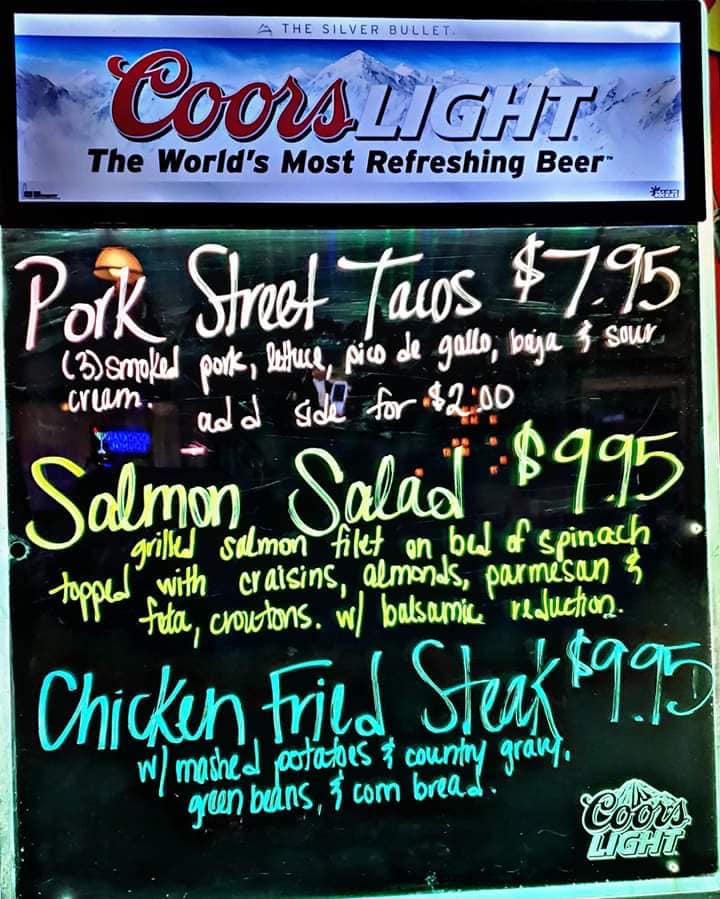 THE SILVER BULLET.
Coors LIGHT
The World's Most Refreshing Beer™
Pork Street Tacos $7.95
(3) smoked pork, lettuce, pico de gallo, baja & sour
cream. add side for $2.00
Salmon Salad $9.95
grilled salmon filet on bed of spinach
topped with craisins, almonds, parmesan &
feta, croutons. w/ balsamic reduction.
Chicken Fried Steak $9.95
w/ mashed potatoes & country gravy,
green beans, & corn bread.
Coors
LIGHT